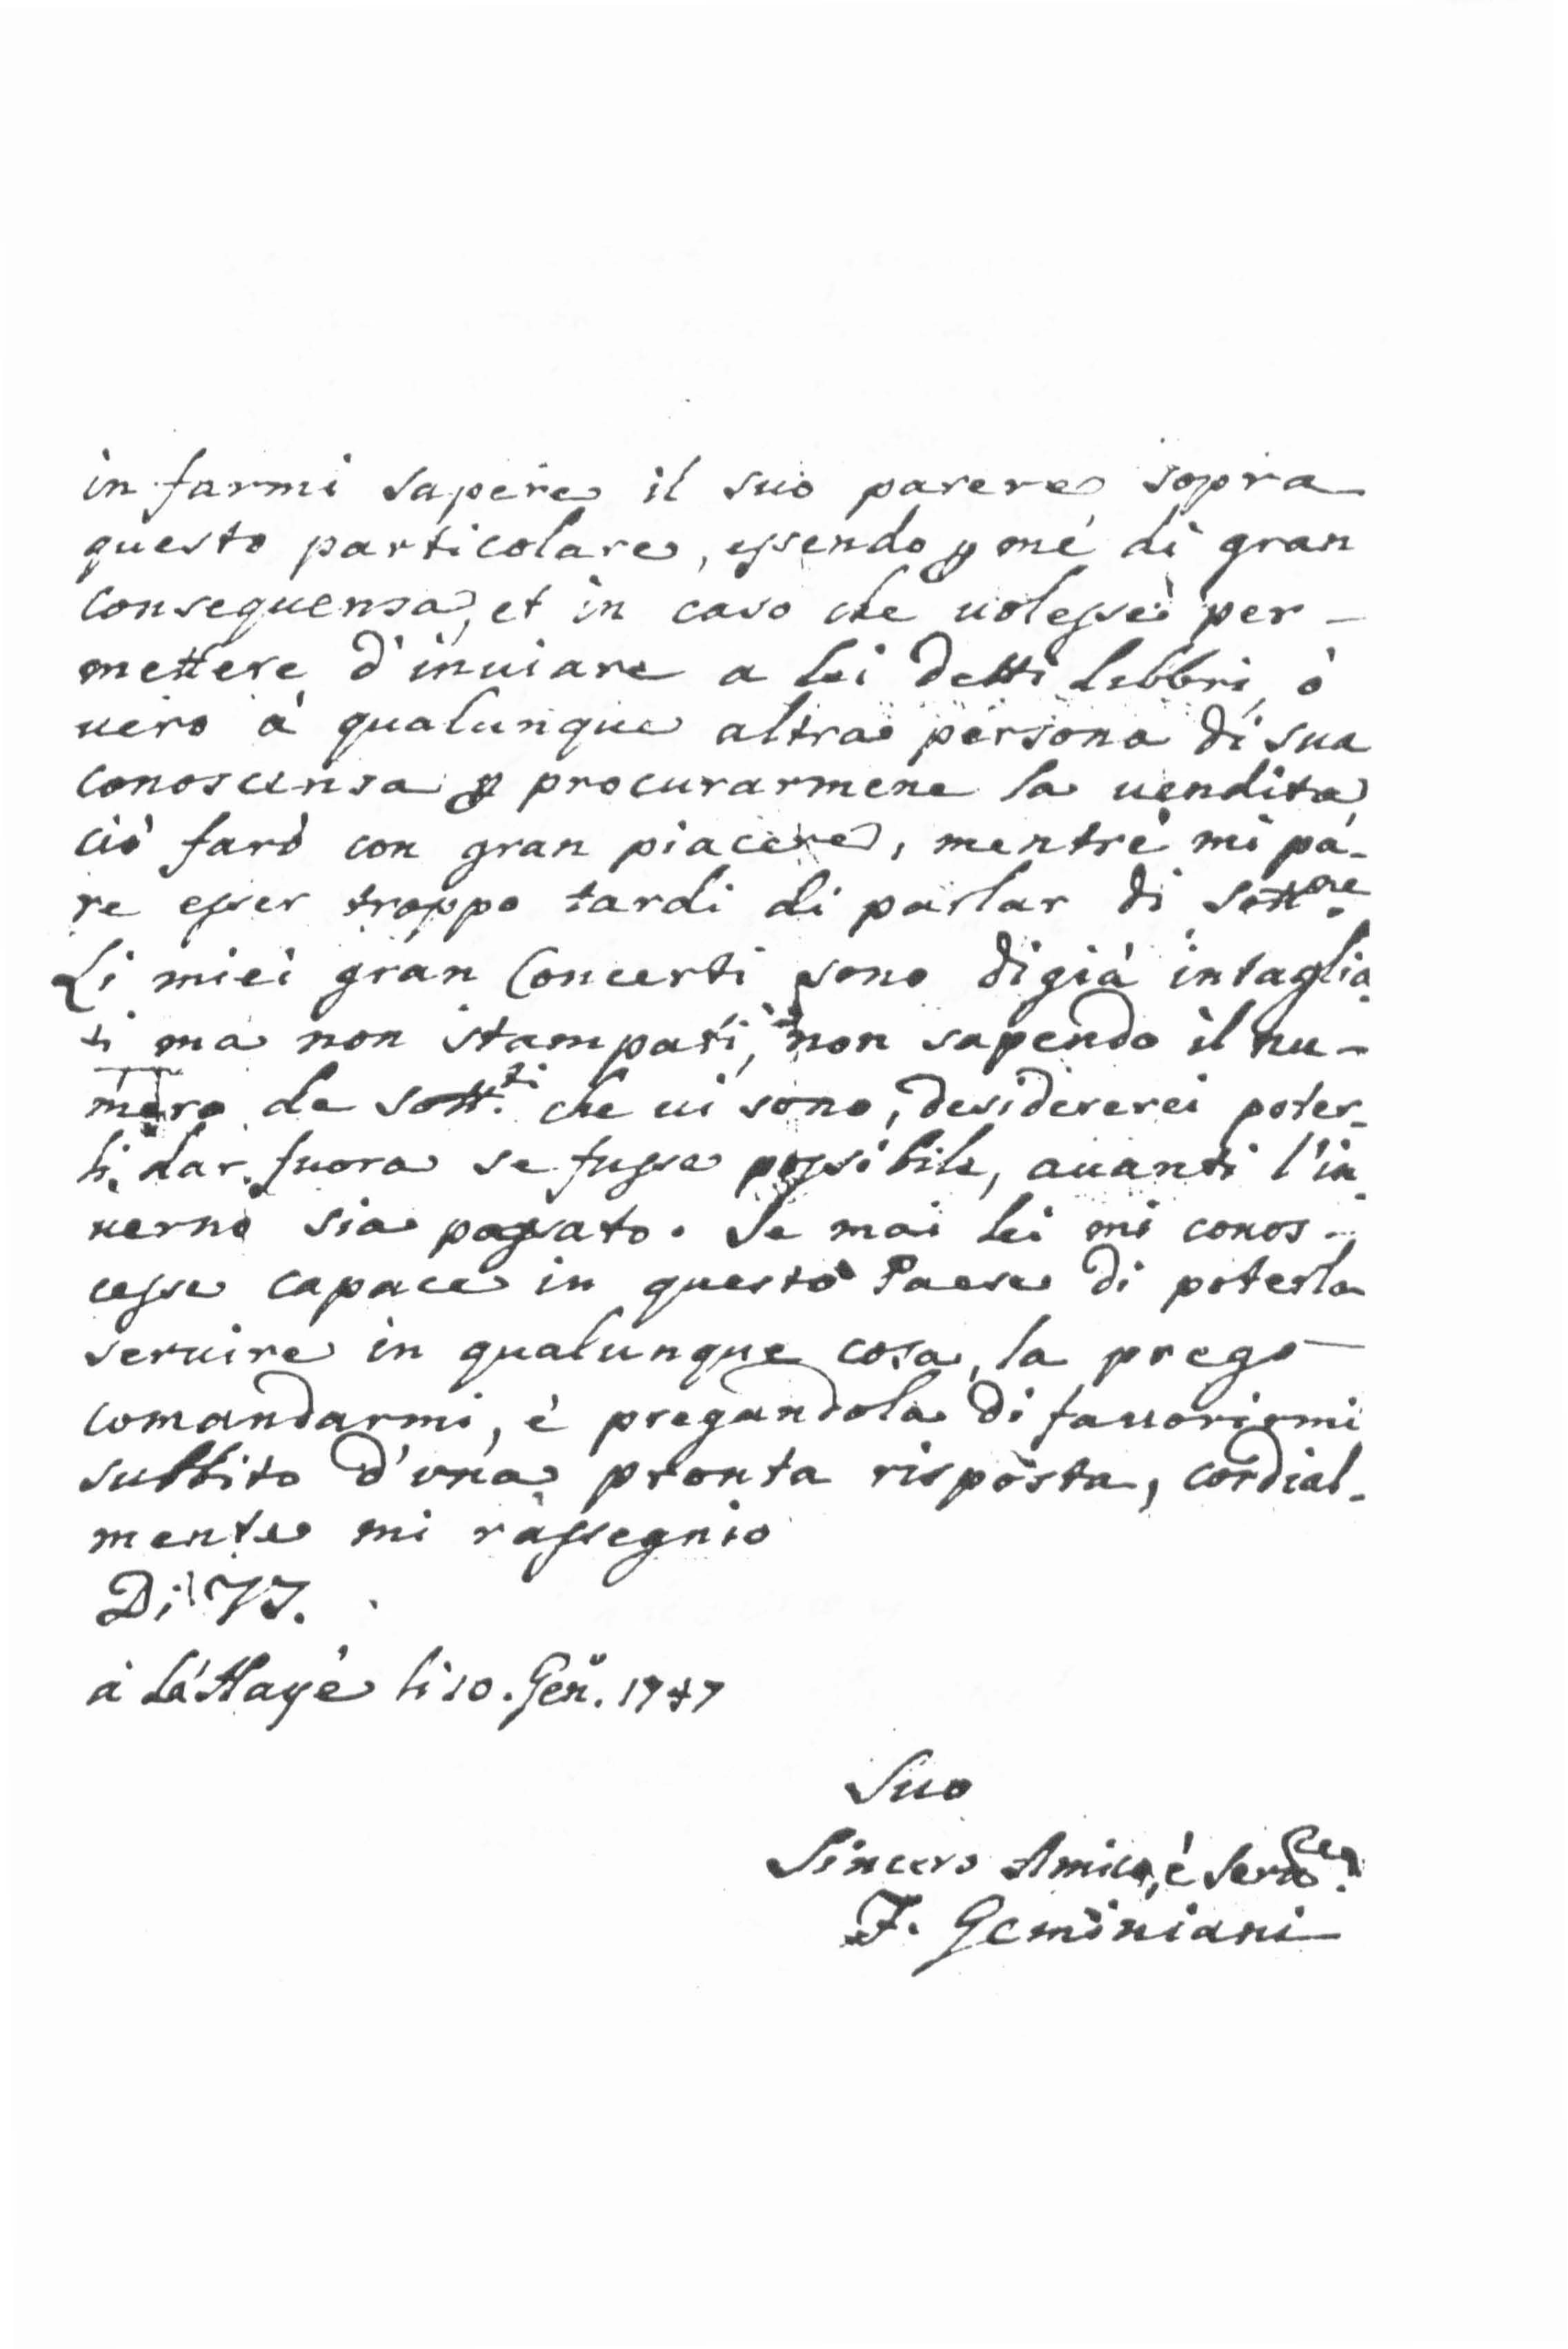 in farmi sapere il suo parere sopra
questo particolare, essendo p mé di gran
consequensa, et in caso che uolesse per-
mettere d'inuiare a lei detti libbri, ò
uero à qualunque altra persona di sua
conoscensa p procurarmene la uendita
ciò farò con gran piacere, mentre mi pa-
re esser troppo tardi di parlar di sott.ne
Li miei gran Concerti sono digià intaglia
ti ma non stampati, non sapendo il nu-
mero de sott.ti che ui sono, desidererei poter-
li dar fuora se fusse possibile, auanti l'in
uerno sia passato. Se mai lei mi conos-
cesse capace in questo Paese di poterla
seruire in qualunque cosa, la prego
comandarmi, è pregandola di fauorirmi
subbito d'una pronta risposta, cordial-
mente mi rassegnio
Di VS.
à La Haye li 10. Gen. 1747
Suo
Sincero Amico, è
F. Geminiani